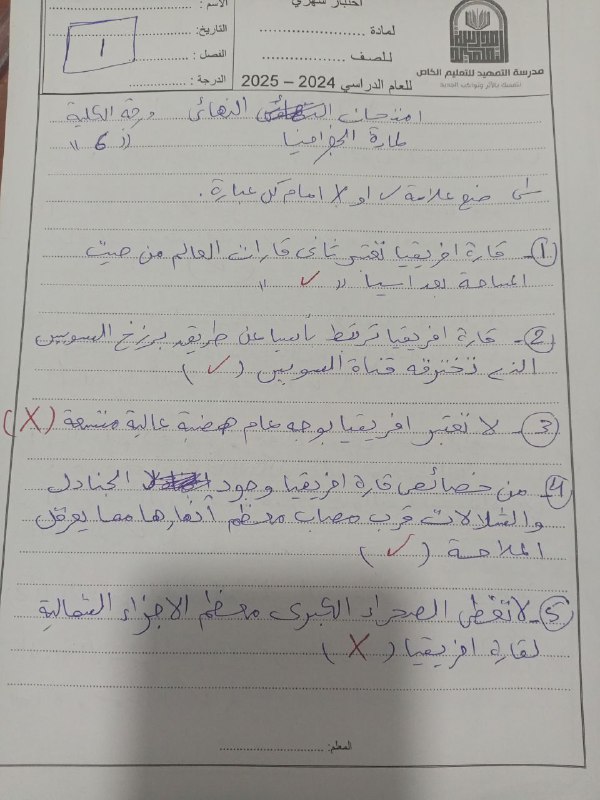 اختبار شهري
الاسم : ....................
لمادة ....................
التاريخ: ....................
للصف ....................
الفصل : ....................
للعام الدراسي 2024 – 2025
الدرجة : ....................
1
مدرسة التمهيد للتعليم الخاص
امتحان النهائي درجة الكلية
لمادة الجغرافيا " 6 "
س/ ضع علامة ✓ او X امام كل عبارة .
1- قارة افريقيا تعتبر ثاني قارات العالم من حيث
المساحة بعد اسيا " ✓ "
2- قارة افريقيا ترتبط بأسيا عن طريق برزخ السويس
الذي تخترقه قناة السويس ( ✓ )
3- لا تعتبر افريقيا بوجه عام هضبة عالية متسعة (X)
4- من خصائص قارة افريقيا وجود الجنادل
والشلالات قرب مصاب معظم أنهارها مما يعرقل
الملاحة ( ✓ )
5- لا تغطي الصحراء الكبرى معظم الاجزاء الشمالية
لقارة افريقيا ( X )
المعلم: ....................